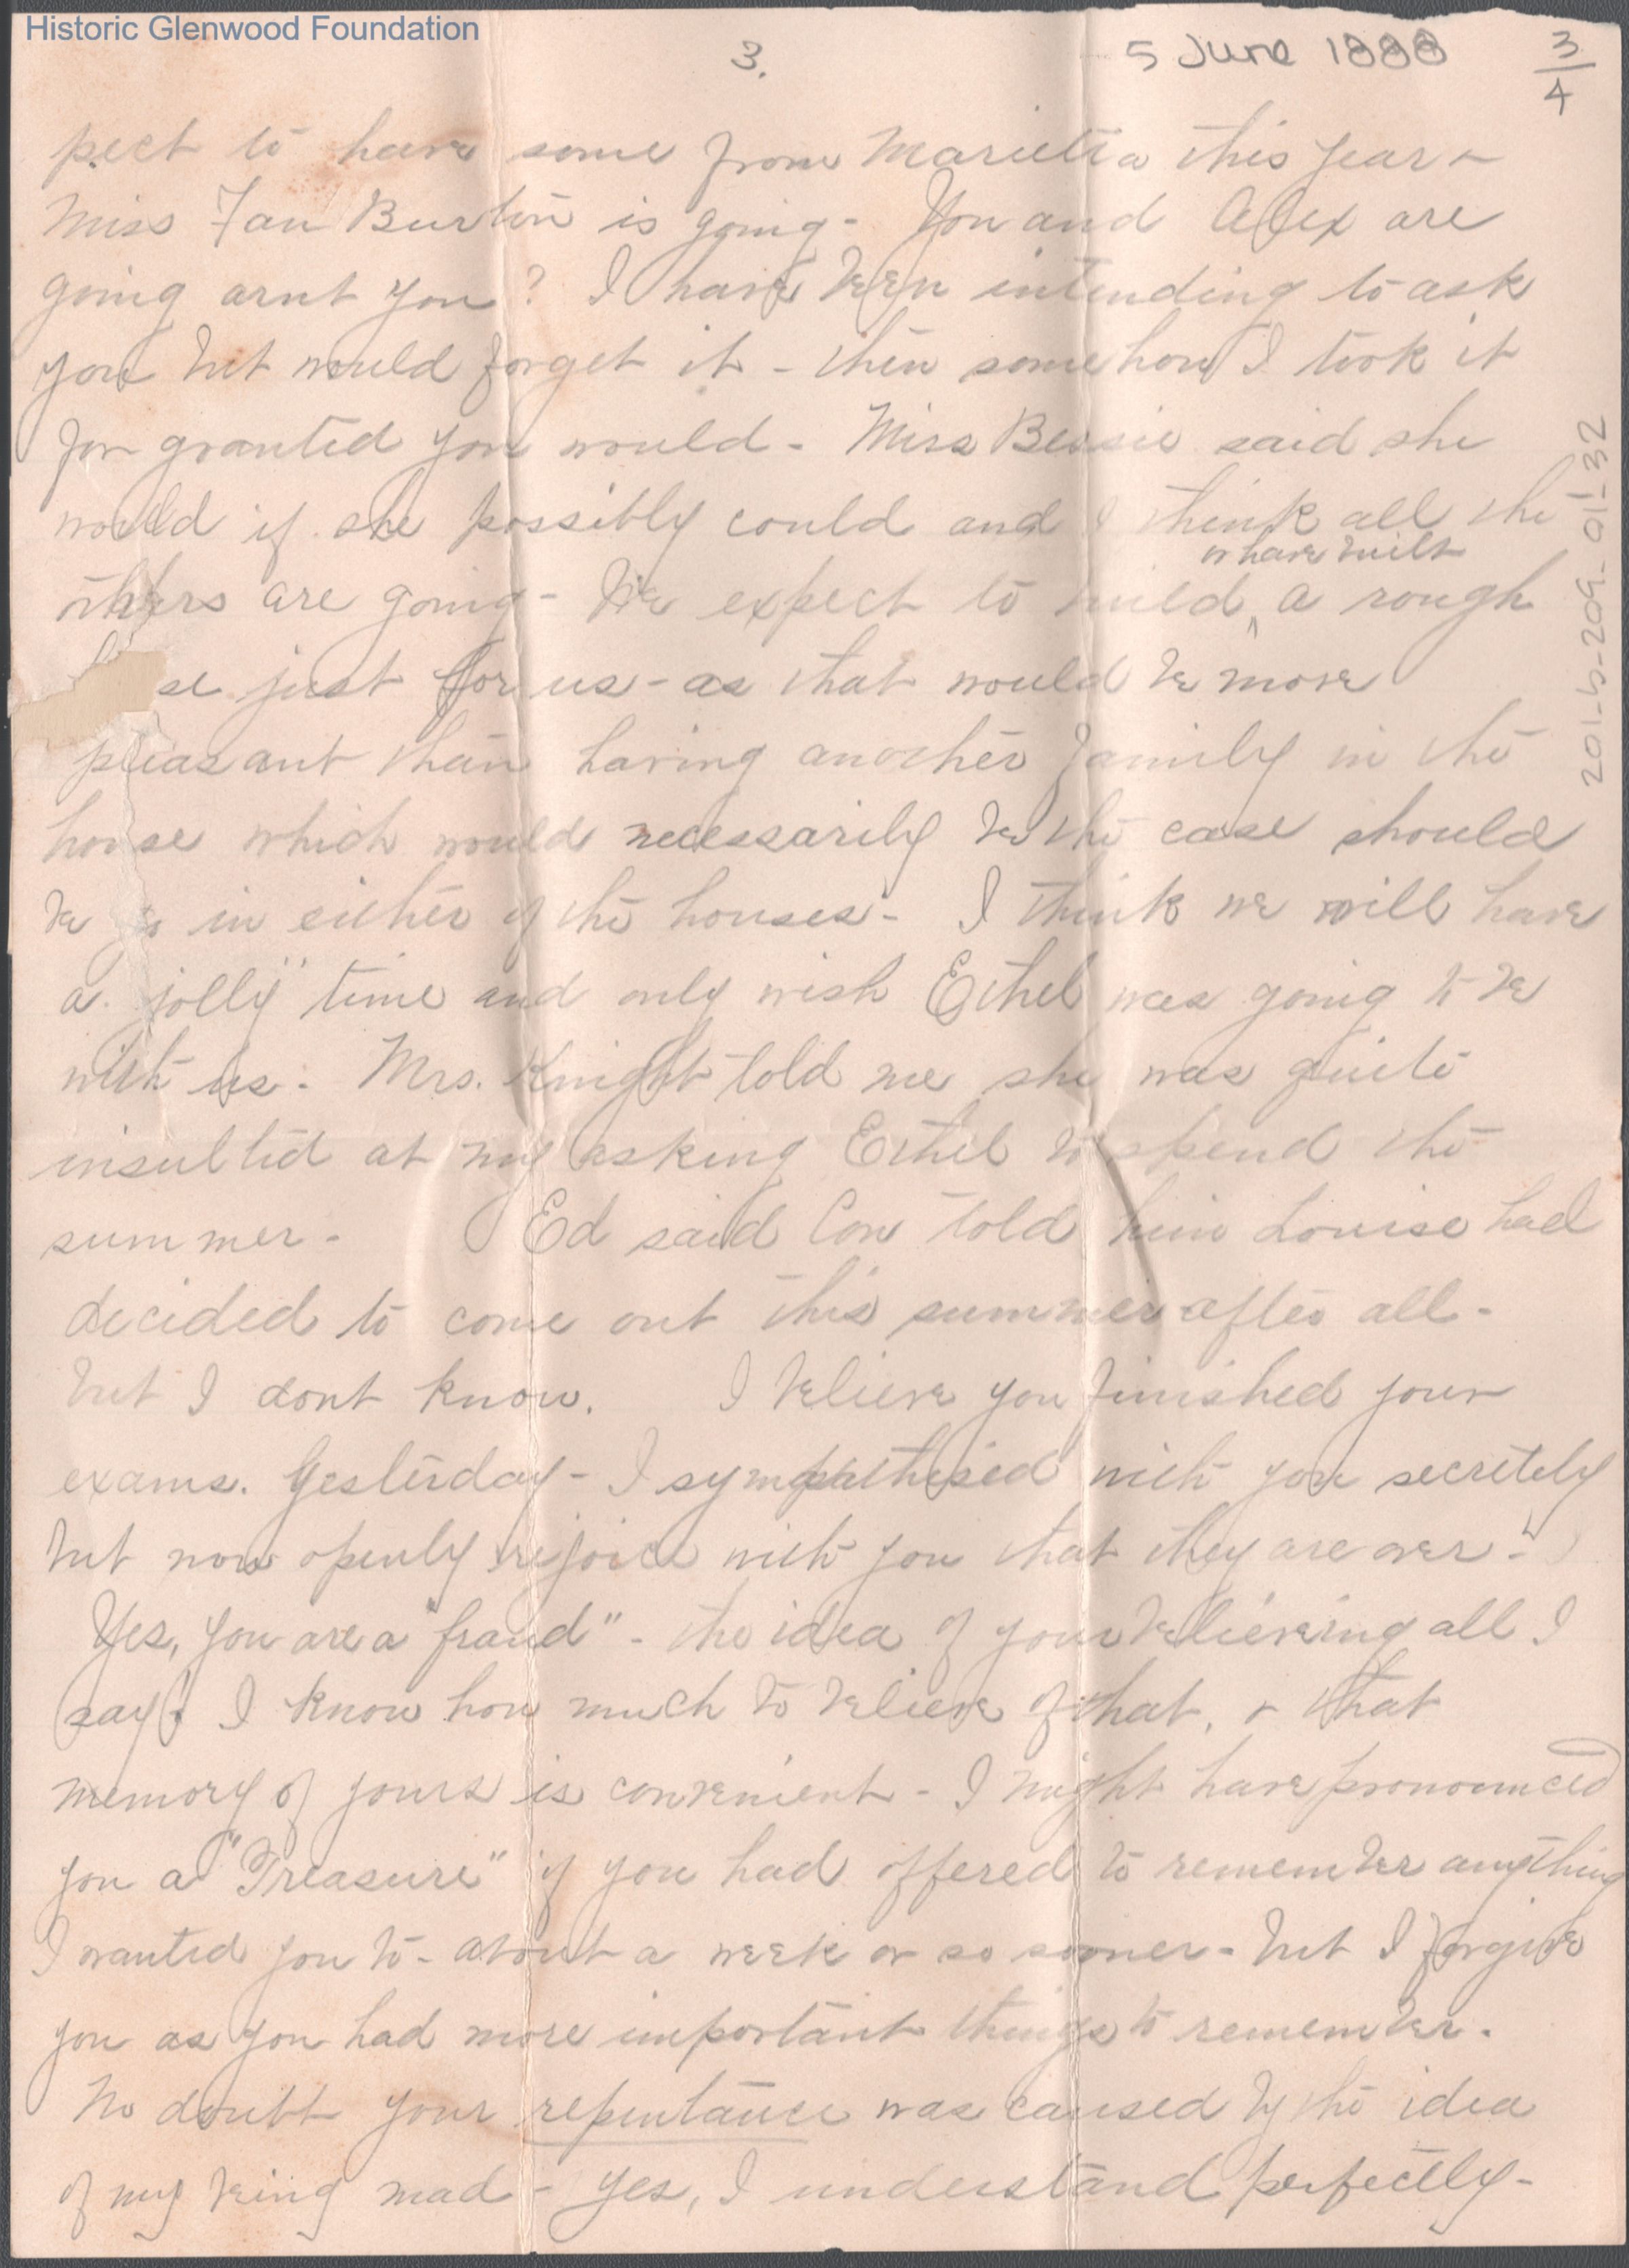 Historic Glenwood Foundation
3.
5 June 1888
3/4
pect to have some from Marietta this year -
Miss Fan Burton is going - You and Alex are
going arnt you? I have been intending to ask
you but would forget it - then somehow I took it
for granted you would - Miss Bessie said she
would if she possibly could and I think all the
others are going - We expect to build a rough
or have built
se just for us - as that would be more
pleasant than having another family in the
house which would necessarily be the case should
we go in either of the houses - I think we will have
a "jolly" time and only wish Ethel was going to be
with us. Mrs. Knight told me she was quite
insulted at my asking Ethel to spend the
summer - Ed said Con told him Louise had
decided to come out this summer after all -
but I dont know. I believe you finished your
exams. Yesterday - I sympathised with you secretely
but now openly rejoice with you that they are over -
Yes, you are a "fraud" - the idea of your believing all I
say! I know how much to believe of that, & that
memory of yours is convenient - I might have pronounced
you a "Treasure" if you had offered to remember anything
I wanted you to - about a week or so sooner - but I forgive
you as you had more important things to remember.
No doubt your repentance was caused by the idea
of my being mad - Yes, I understand perfectly -
201-b-209-01-32